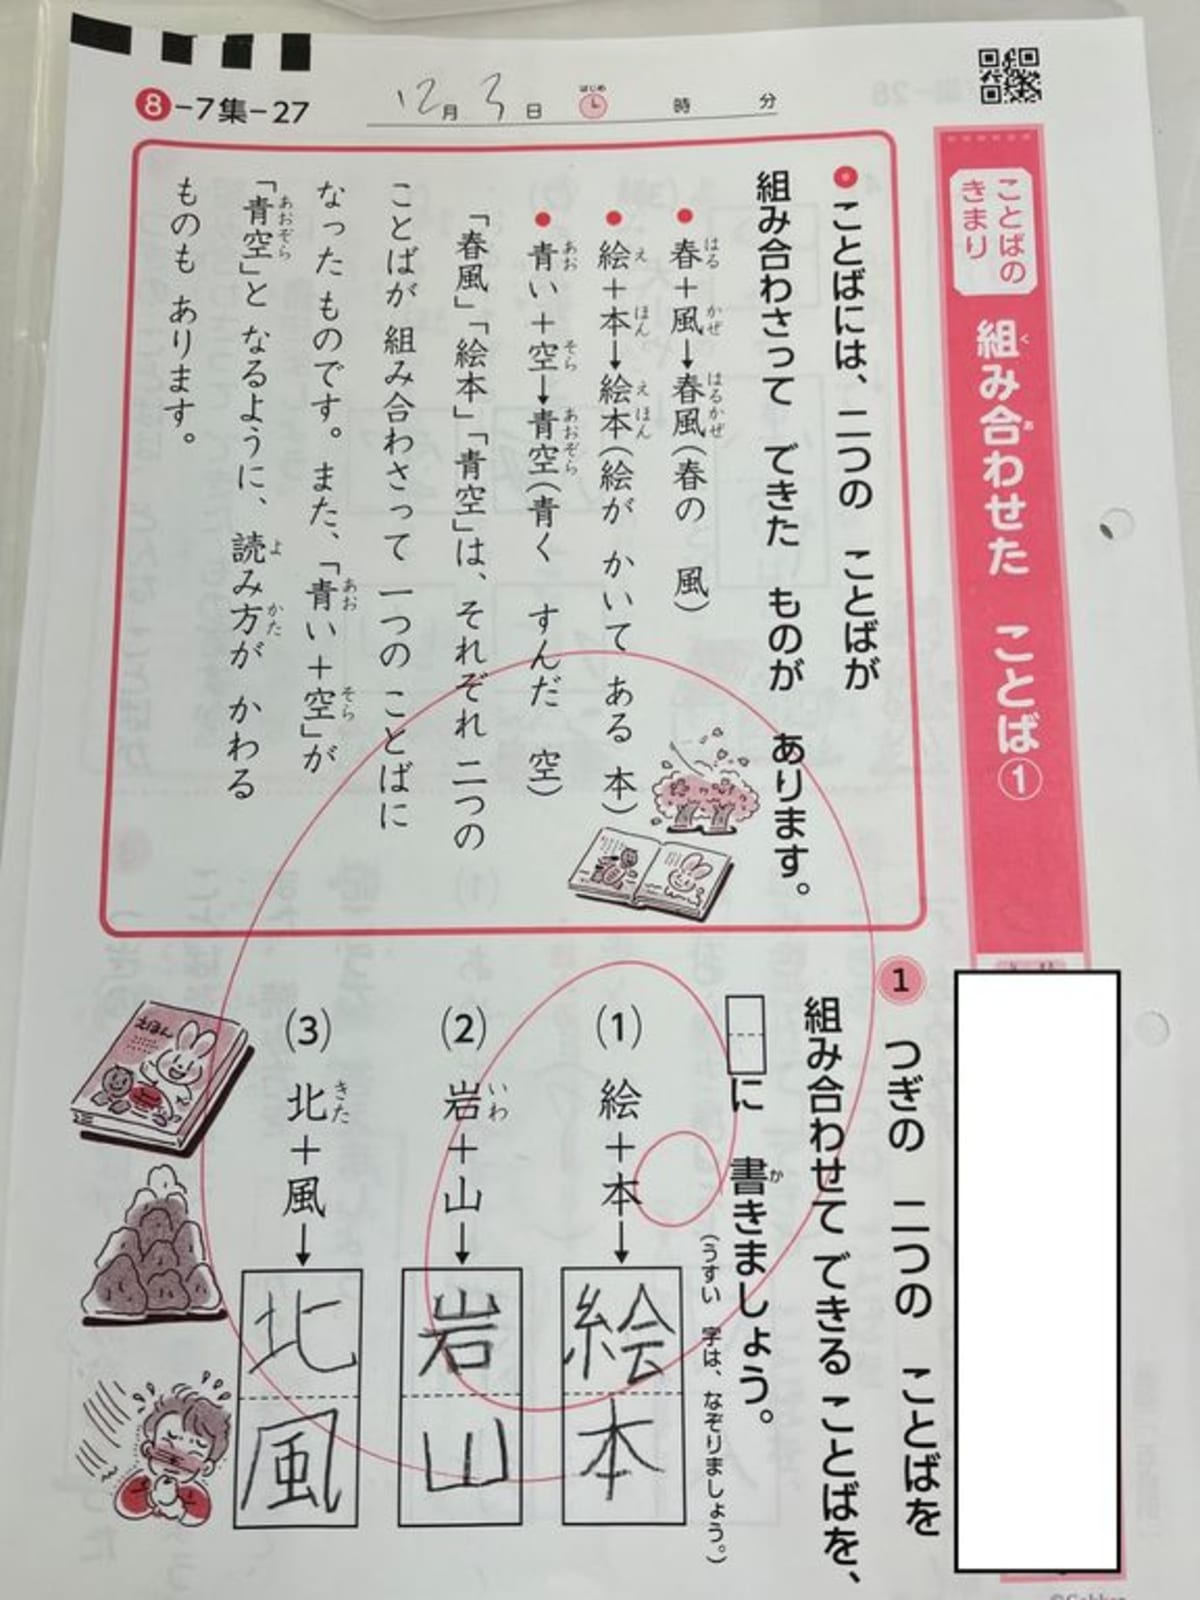 8-7集-27
12月3日 はじめ 時 分
ことばの
きまり
組み合わせた ことば①
ことばには、二つの ことばが
組み合わさって できた ものが あります。
春+風→春風(春の 風)
絵+本→絵本(絵が かいて ある 本)
青い+空→青空(青く すんだ 空)
「春風」「絵本」「青空」は、それぞれ 二つの
ことばが 組み合わさって 一つの ことばに
なった ものです。また、「青い+空」が
「青空」と なるように、読み方が かわる
ものも あります。
1 つぎの 二つの ことばを
組み合わせて できる ことばを、
に 書きましょう。
(うすい 字は、なぞりましょう。)
(1) 絵+本→絵本
(2) 岩+山→岩山
(3) 北+風→北風
えほん